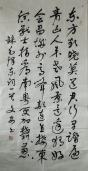 东方欲晓莫道君行早踏遍
青山人未老风景这边独好
会昌城外高峰颠连直接东
溟战士指看南粤更加郁郁葱
毛泽东词一首